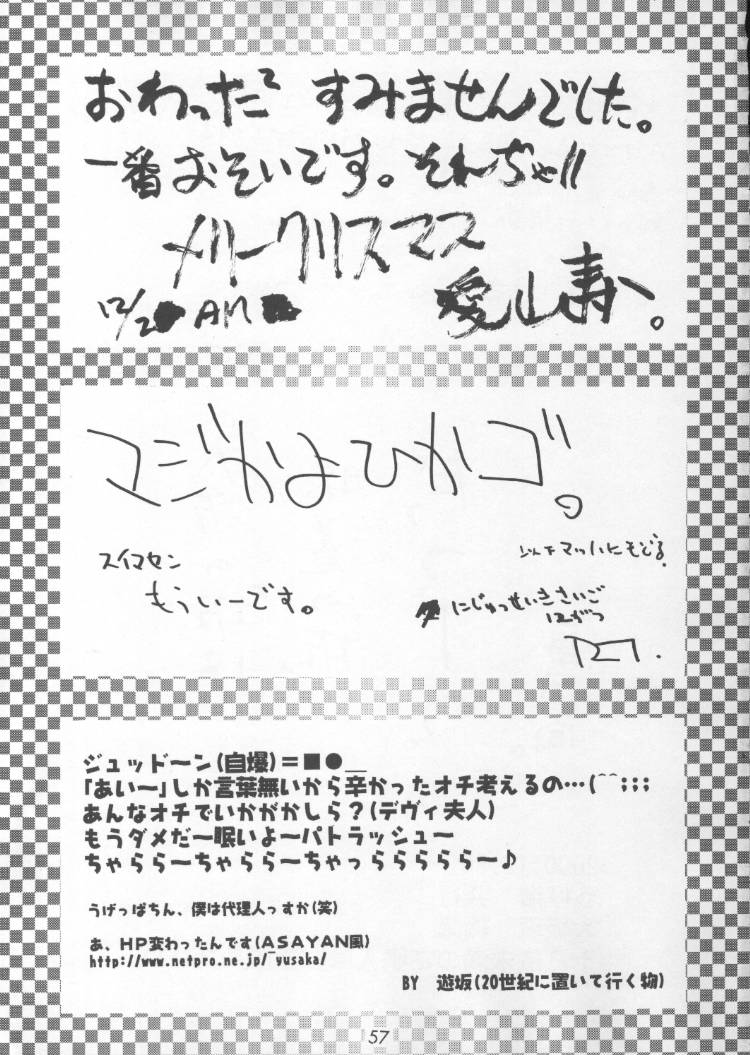 おわった〜 すみませんでした。
一番おそいです。それぢゃ!!
メリークリスマス
12/2 AM
愛山寿〜。
マジかよひかゴ。
スイマセン
もういーです。
にもどる
にじゅっせいきさいご
12がつ
ジュッドーン(自爆)=■●＿
「あい〜」しか言葉無いから辛かったオチ考えるの…(￣￣;;;
あんなオチでいかがかしら?(デヴィ夫人)
もうダメだ〜眠いよ〜パトラッシュ〜
ちゃらら〜ちゃらら〜ちゃっらららららら〜♪
うげっぱちん、僕は代理人っすか(笑)
あ、HP変わったんです(ASAYAN風)
http://www.netpro.ne.jp/~yusaka/
BY 遊坂(20世紀に置いて行く物)
57